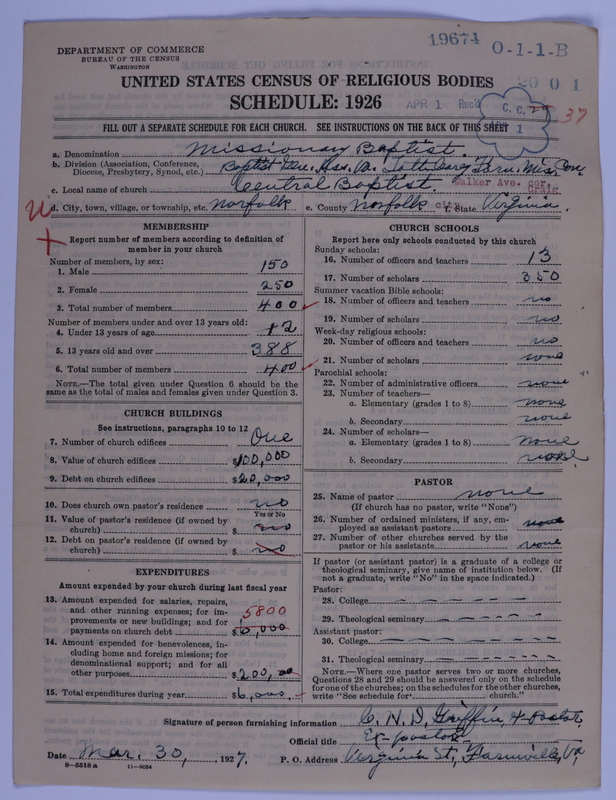 DEPARTMENT OF COMMERCE
BUREAU OF THE CENSUS
WASHINGTON
19674 O-1-1-B
UNITED STATES CENSUS OF RELIGIOUS BODIES
2001
SCHEDULE: 1926
APR 1 Rec'd
C. C.
APR 1
37
FILL OUT A SEPARATE SCHEDULE FOR EACH CHURCH. SEE INSTRUCTIONS ON THE BACK OF THIS SHEET
a. Denomination Missionary Baptist.
b. Division (Association, Conference, Diocese, Presbytery, Synod, etc.) Baptist Gen. Mis. Con.
c. Local name of church Central Baptist. Walker Ave. cor.
d. City, town, village, or township, etc. Norfolk e. County Norfolk city f. State Virginia.
MEMBERSHIP
Report number of members according to definition of
member in your church
Number of members, by sex:
1. Male 150
2. Female 250
3. Total number of members 400
Number of members under and over 13 years old:
4. Under 13 years of age 12
5. 13 years old and over 388
6. Total number of members 400
NOTE.—The total given under Question 6 should be the
same as the total of males and females given under Question 3.
CHURCH BUILDINGS
See instructions, paragraphs 10 to 12
7. Number of church edifices One
8. Value of church edifices $100,000
9. Debt on church edifices $20,000
10. Does church own pastor's residence? no
Yes or No
11. Value of pastor's residence (if owned by
church) $ no
12. Debt on pastor's residence (if owned by
church) $ no
EXPENDITURES
Amount expended by your church during last fiscal year
13. Amount expended for salaries, repairs,
and other running expenses; for im-
provements or new buildings; and for
payments on church debt 5800 $6,000
14. Amount expended for benevolences, in-
cluding home and foreign missions; for
denominational support; and for all
other purposes $200,00
15. Total expenditures during year $6,000.
CHURCH SCHOOLS
Report here only schools conducted by this church
Sunday schools:
16. Number of officers and teachers 13
17. Number of scholars 350
Summer vacation Bible schools:
18. Number of officers and teachers no
19. Number of scholars no
Week-day religious schools:
20. Number of officers and teachers no
21. Number of scholars none
Parochial schools:
22. Number of administrative officers none
23. Number of teachers—
a. Elementary (grades 1 to 8) none
b. Secondary none
24. Number of scholars—
a. Elementary (grades 1 to 8) none
b. Secondary none
PASTOR
25. Name of pastor none
(If church has no pastor, write "None")
26. Number of ordained ministers, if any, em-
ployed as assistant pastors none
27. Number of other churches served by the
pastor or his assistants none
If pastor (or assistant pastor) is a graduate of a college or
theological seminary, give name of institution below. (If
not a graduate, write "No" in the space indicated.)
Pastor:
28. College
29. Theological seminary
Assistant pastor:
30. College
31. Theological seminary
NOTE.—Where one pastor serves two or more churches,
Questions 28 and 29 should be answered only on the schedule
for one of the churches; on the schedules for the other churches,
write "See schedule for church."
Signature of person furnishing information C. N. D. Griffin, Pastor,
Official title Ex-pastor
Date Mar. 30, 1927. P. O. Address Virginia St, Farmville, Va
8—5518 a 11—9054